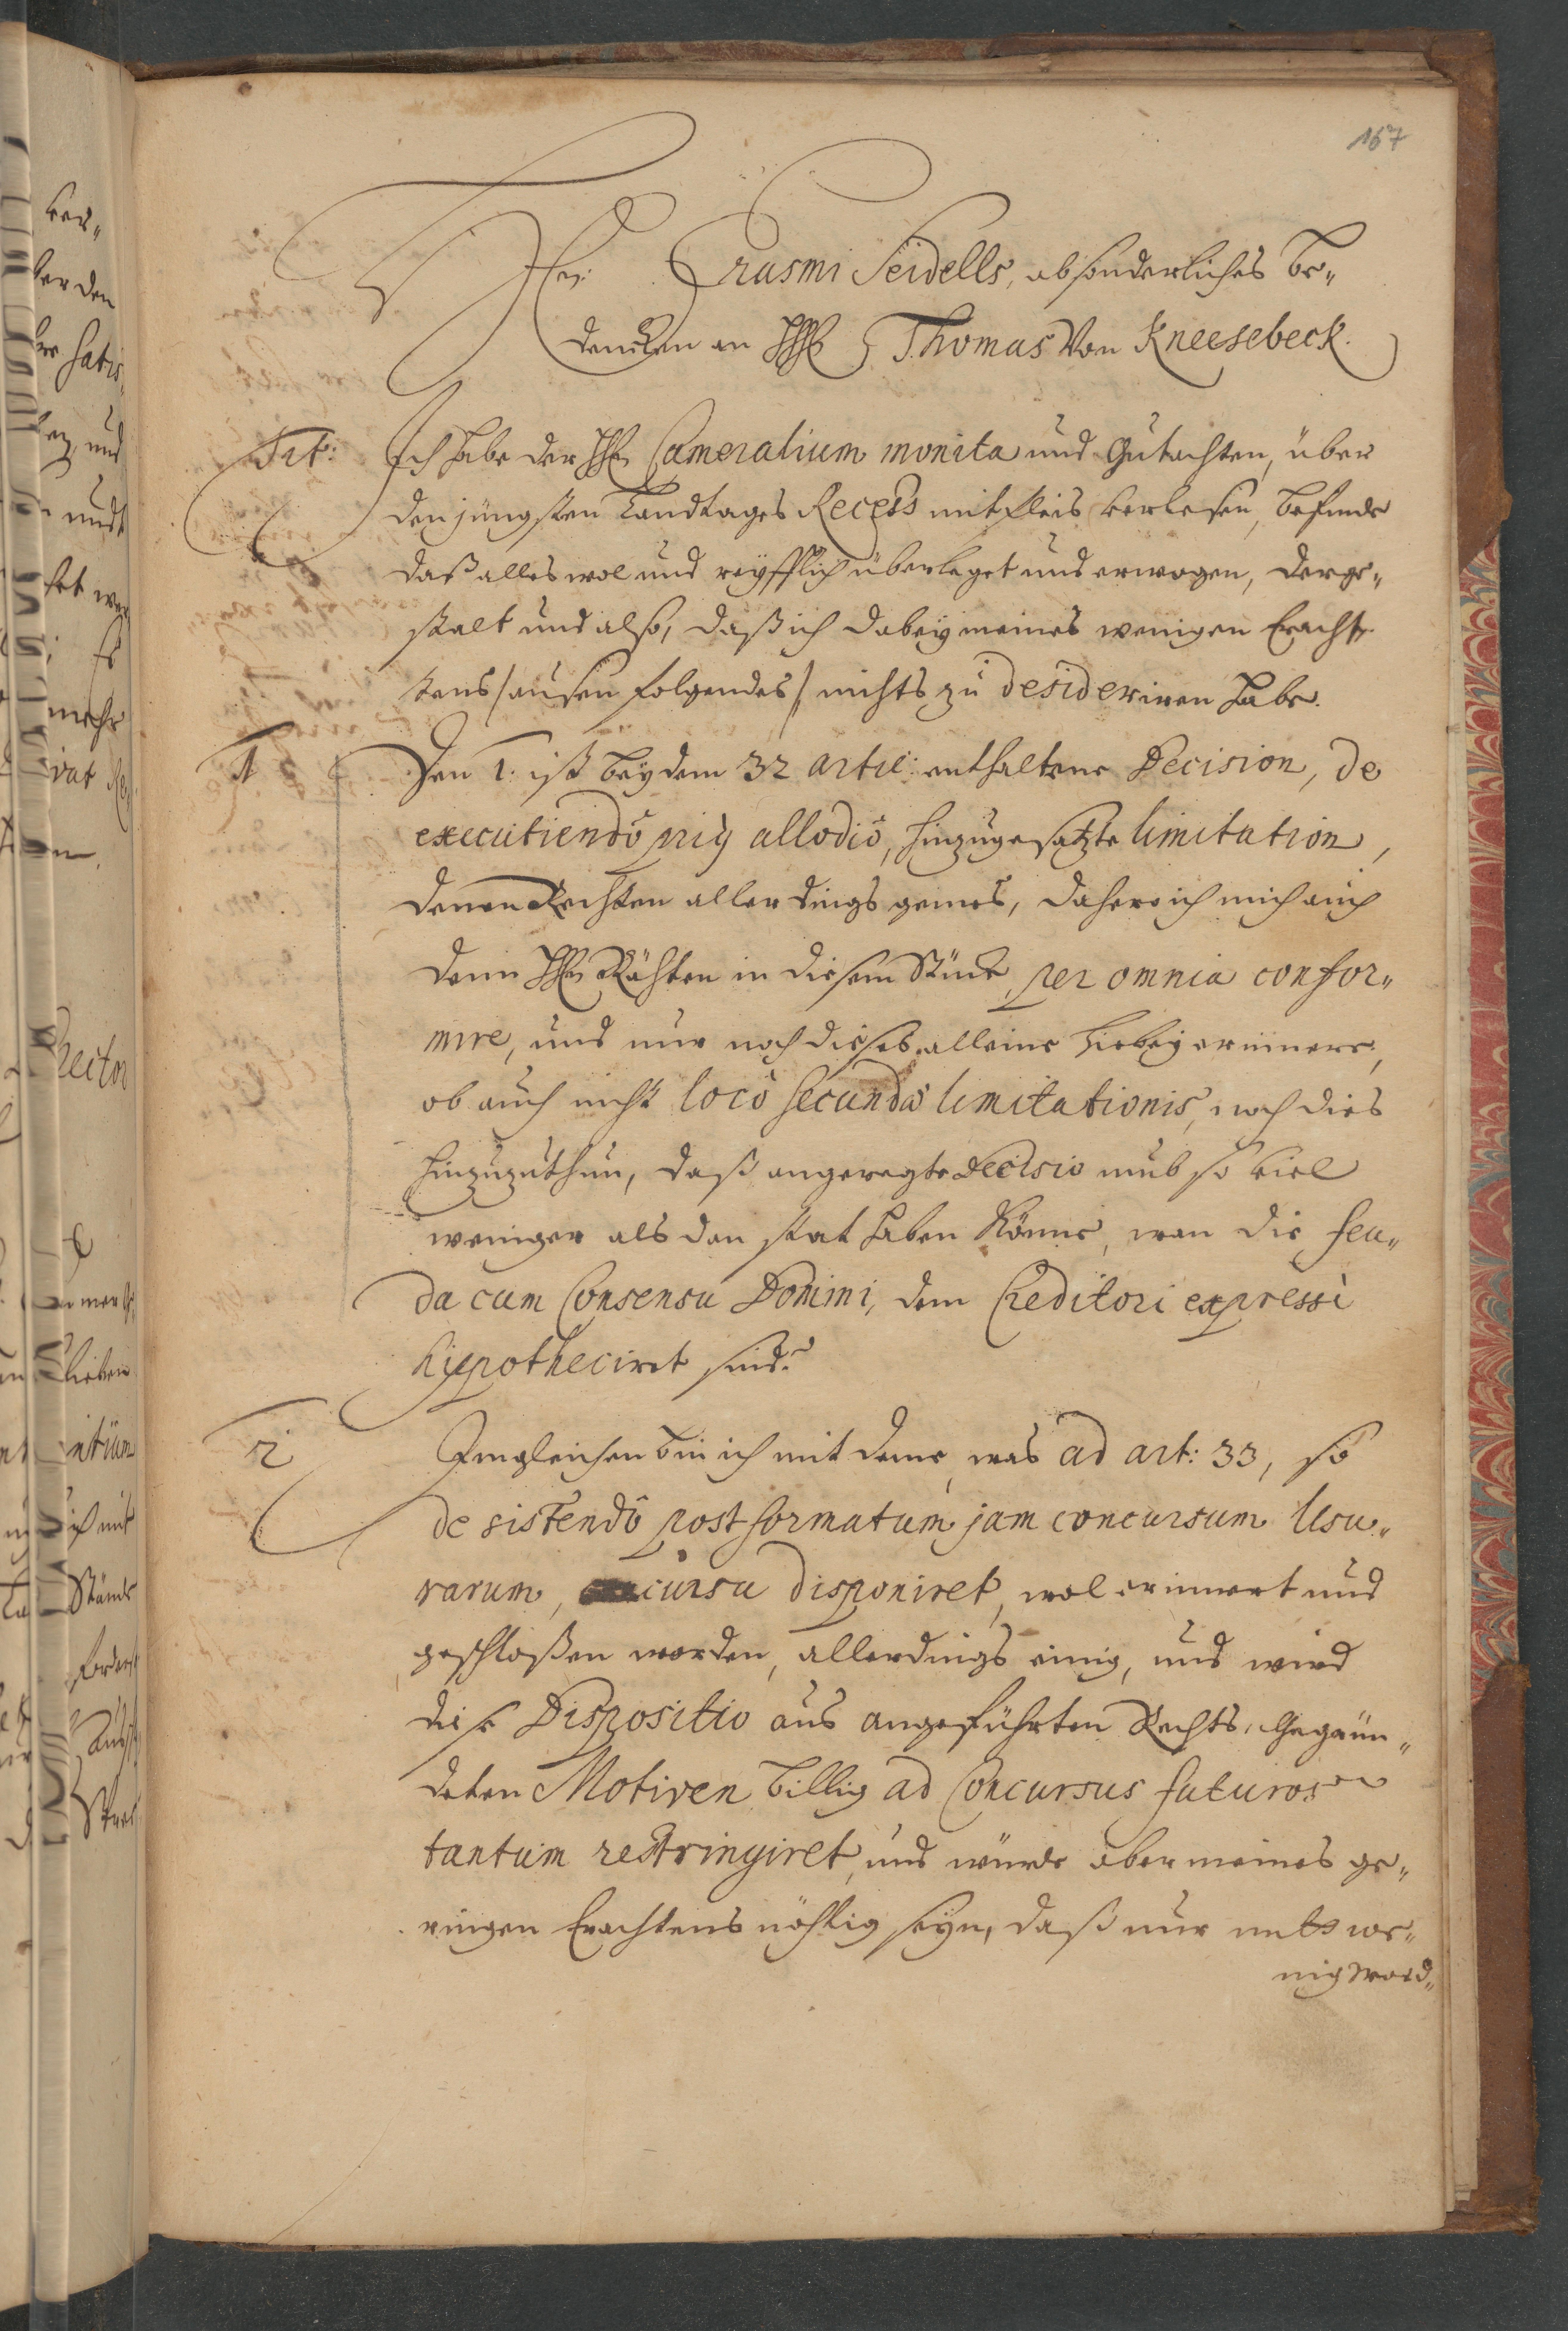 167
Hn: Erasmi Seidells, absonderliches Be„
dencken an HHE Thomas Von Kneesebeck.
Tit: Ich habe der HHE Cameralium monita und Gutachten, über
den jüngsten Landtages Recess mit fleis verlesen, befinde
daß alles wol und reyfflich überleget und erwogen, derge„
stalt und also, daß ich dabeÿ meines wenigen Eracht„
tens /ausen folgendes/ nichts zu desideriren habe.
1 Den 1. ist beÿ dem 32 artic: enthaltene Decision, de
executiendô priÿ allodiô, hinzugesatzte limitation,
denen Rechten allerdings gemes, dahero ich mich auch
denn HHE Rähten in diesem Stück, per omnia confor„
mire, und nur noch dieses alleine hiebeÿ erinnere,
ob auch nicht locô secundæ limitationis, noch dies
hinzuzuthun, daß angeregte Decisio umb so viel
weniger als dan stat haben könne, wan die feu„
da cum Consensu Domini, dem Creditori expressè
hÿpotheciret sind?
2 Imgleichen bin ich mit deme, was ad art: 33, so
de sistendô post formatum jam concursum Usu„
rarum, concursu disponiret, wol erinnert und
geschloßen worden, allerdings einig, und wird
diese Dispositio aus angeführten Rechts, Gegrün„
deten Motiven billig ad Concursus futuros
tantum restringiret, und würde aber meines ge„
ringen Erachtens nöhtig seÿn, daß nur mit we„
nig Word„